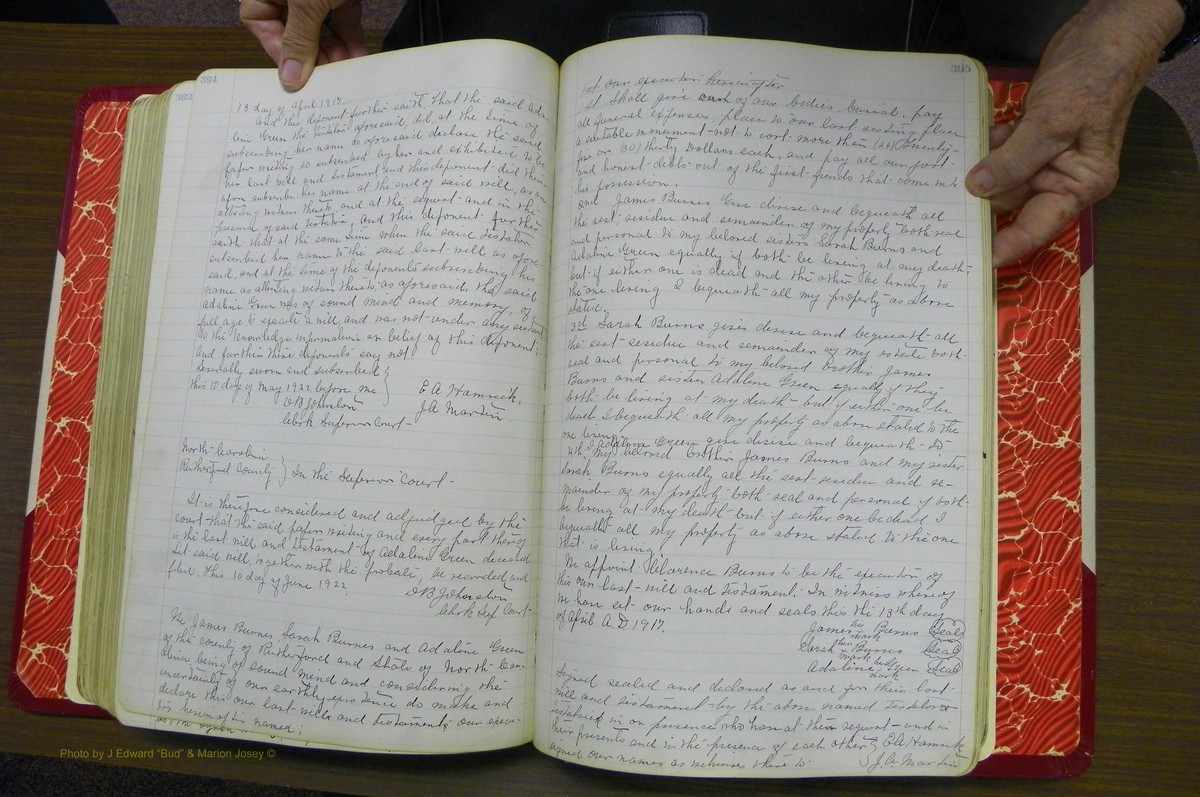 394
13 day of April 1917.
And this deponent further saith, that the said Ada-
line Green the testatrix aforesaid, did, at the time of
subscribing her name as aforesaid declare the said
paper writing so subscribed by her and exhibited to be
her last will and testament and this deponent did there-
upon subscribe his name at the end of said will, as an
attesting witness thereto, and at the request and in the
presence of said testatrix. And this deponent further
saith that at the same time when the said testatrix
subscribed her name to the said last will as afore-
said, and at the time of the deponents subscribing his
name as attesting witness thereto, as aforesaid, the said
Adaline Green was of sound mind and memory, of
full age to execute a will and was not under any restraint
to the knowledge, information or belief of this deponent;
and further these deponents say not
Severally sworn and subscribed
this 10 day of May 1922, before me
E A Hamrick,
J.A. Martin.
O B Johnston
Clerk Superior Court-
North Carolina
Rutherford County
In the Superior Court-
It is therefore considered and adjudged by the
court that the said paper writing and every part thereof
is the last will and testament of Adaline Green deceased
Let said will, together with the probate, be recorded and
filed. This 10 day of June 1922
O B Johnston
Clerk Sup Court-
We James Burnes Sarah Burnes and Adaline Green
of the county of Rutherford and State of North Car-
olina, being of sound mind and considering the
uncertainty of our earthly existence do make and
declare this our last will and testament; our execu-
tor herein to be named;
395
of our executor hereinafter
1st. Shall give each of our bodies burial, pay
all funeral expenses, place to our last resting place
a suitable monument not to cost more than (25) twenty-
five or (30) thirty Dollars each, and pay all our just
and honest debts out of the first funds that come into
his possession.
2nd James Burnes give devise and bequeath all
the rest residue and remainder of my property both real
and personal to my beloved sisters Sarah Burns and
Adaline Green equally if both be living at my death-
but if either one is dead and the other be living to
the one living I bequeath all my property as above
stated.
3rd Sarah Burns gives devise and bequeath all
the rest residue and remainder of my estate both
real and personal to my beloved brother James
Burns and sister Adaline Green equally if they
both be living at my death but if either one be
dead I bequeath all my property as above stated to the
one living.
4th I Adaline Green give devise and bequeath to
my beloved brother James Burns and my sister
Sarah Burns equally all the rest residue and re-
mainder of my property both real and personal if both
be living at my death but if either one be dead I
bequeath all my property as above stated to the one
that is living.
We appoint Clarence Burns to be the executor of
this our last will and testament. In witness whereof
we have set our hands and seals this the 13th day
of April A.D 1917.
James his mark Burns (Seal)
Sarah her mark Burns (Seal)
Adaline her mark Green (Seal)
Signed sealed and declared as and for their last
will and testament by the above named Testators
in our presence who have at their request and in
their presents and in the presence of each other
signed our names as witnesses there to
E A Hamrick
J.A. Martin
Photo by J Edward "Bud" & Marion Josey ©